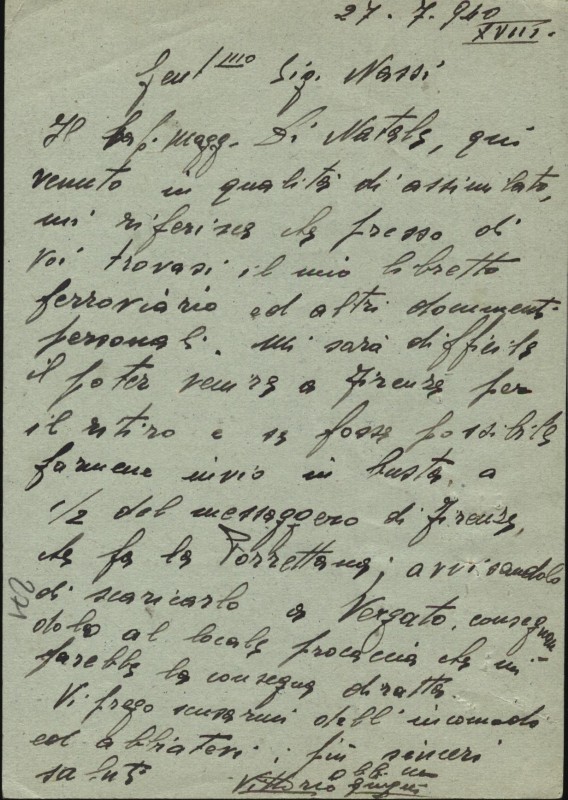 27. 7. 940
XVIII.
Gent/mo Sig. Nassi
Il Magg. Di Natale, qui
venuto in qualità di assimilato,
mi riferisce che presso di
voi trovasi il mio libretto
ferroviario ed altri documenti
personali. Mi sarà difficile
il poter venire a Firenze per
il ritiro e se fosse possibile
farmene invio in busta a
1/2 del messaggero di Firenze,
che fa la Porrettana; avvisandolo
di scaricarlo a Vergato, consegnan
dola al locale procaccia che mi
farebbe la consegna diretta.
Vi prego scusarmi dell'incomodo
ed abbiatevi i più sinceri
saluti
Vittorio
271